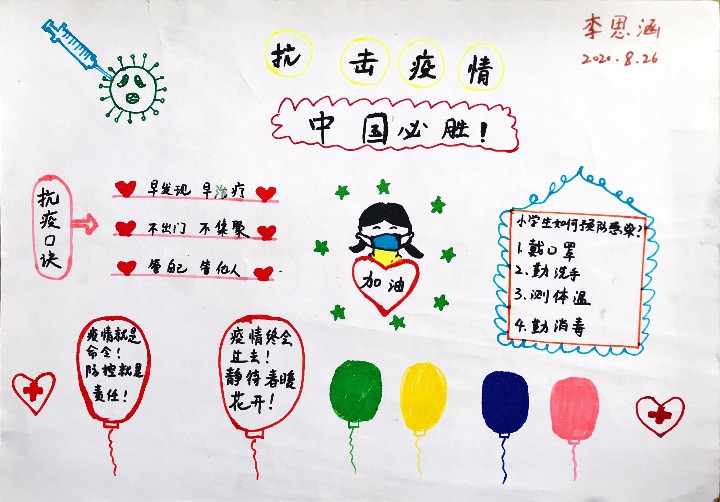 李思涵
2020.8.26
抗击疫情
中国必胜!
抗疫口诀
早发现 早治疗
不出门 不集聚
管自己 管他人
加油
小学生如何预防感染?
1.戴口罩
2.勤洗手
3.测体温
4.勤消毒
疫情就是
命令!
防控就是
责任!
疫情终会
过去!
静待春暖
花开!